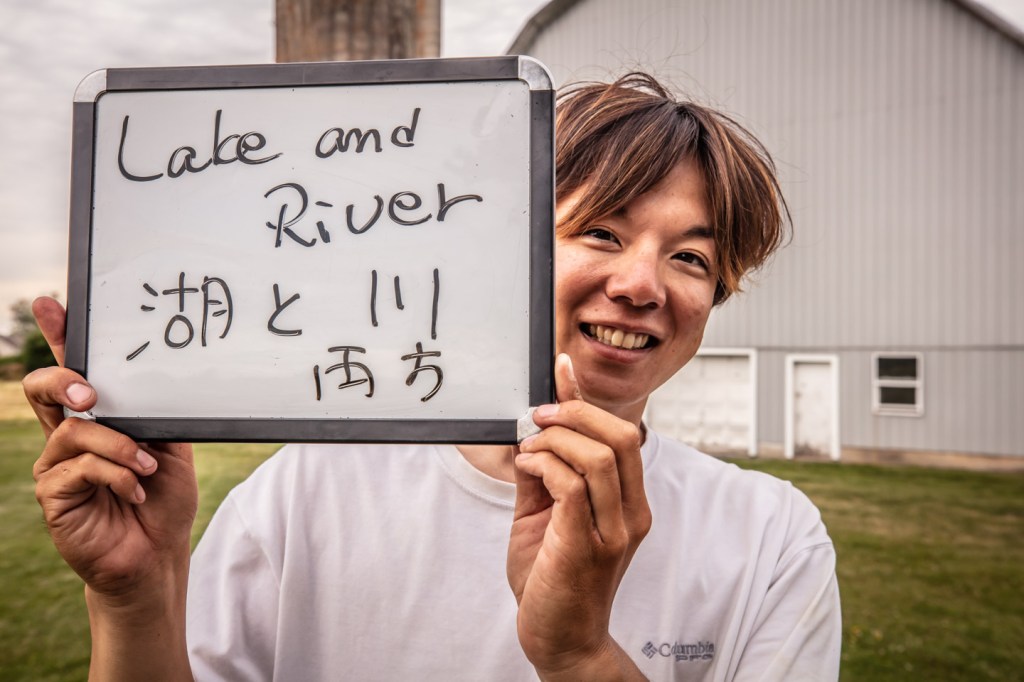 Lake and
River
湖と川
両方
Columbia